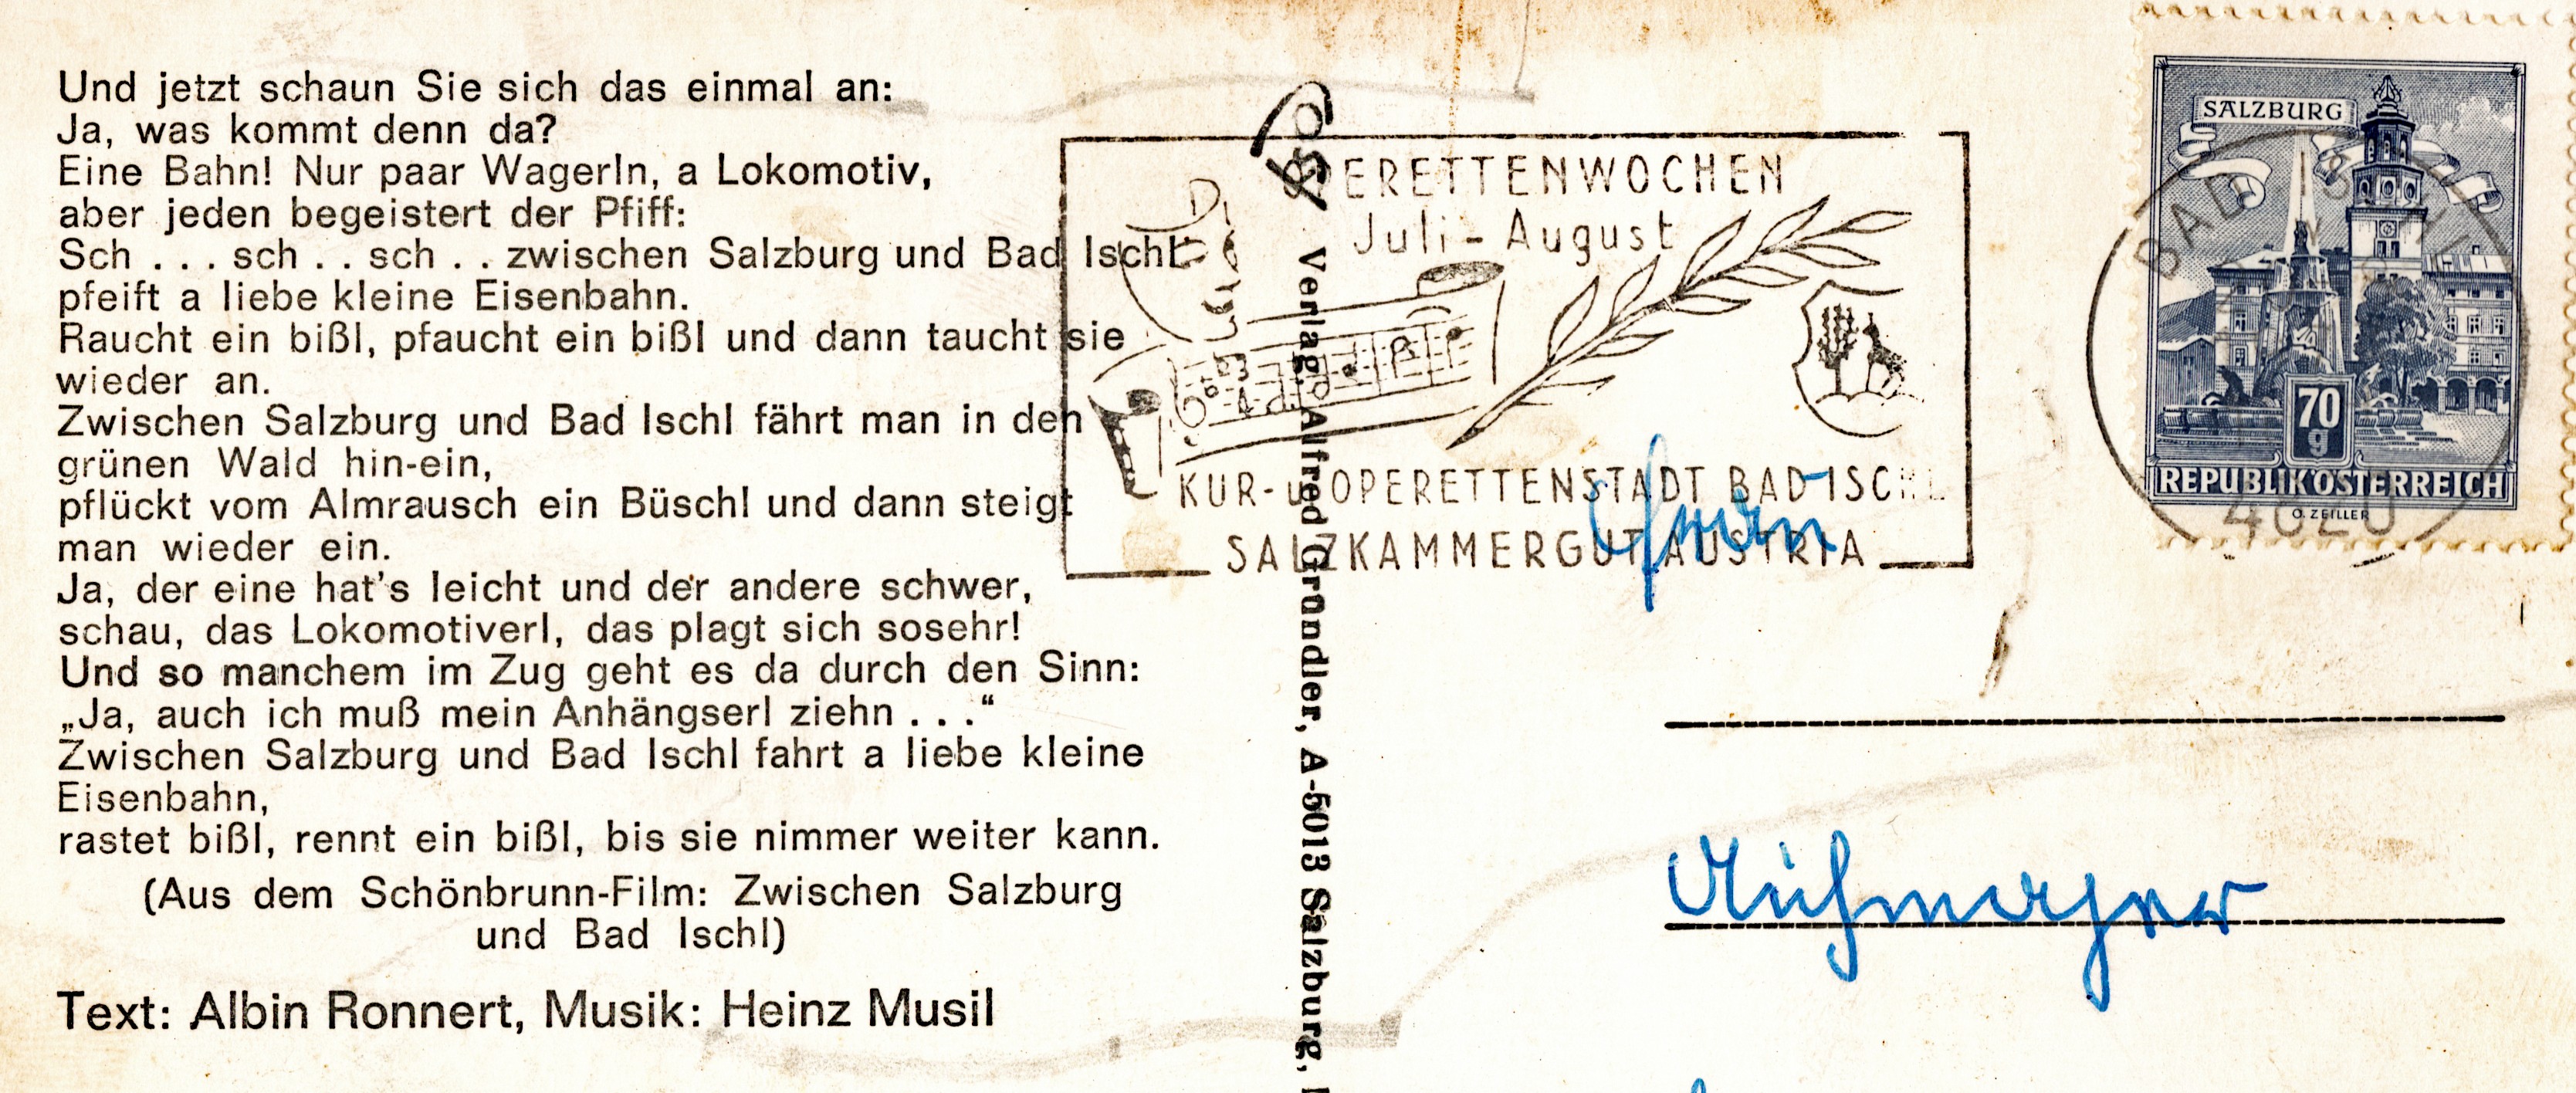 Und jetzt schaun Sie sich das einmal an:
Ja, was kommt denn da?
Eine Bahn! Nur paar Wagerln, a Lokomotiv,
aber jeden begeistert der Pfiff:
Sch . . . sch . . sch . . zwischen Salzburg und Bad Ischl
pfeift a liebe kleine Eisenbahn.
Raucht ein bißl, pfaucht ein bißl und dann taucht sie
wieder an.
Zwischen Salzburg und Bad Ischl fährt man in den
grünen Wald hin-ein,
pflückt vom Almrausch ein Büschl und dann steigt
man wieder ein.
Ja, der eine hat's leicht und der andere schwer,
schau, das Lokomotiverl, das plagt sich sosehr!
Und so manchem im Zug geht es da durch den Sinn:
„Ja, auch ich muß mein Anhängserl ziehn . . .“
Zwischen Salzburg und Bad Ischl fahrt a liebe kleine
Eisenbahn,
rastet bißl, rennt ein bißl, bis sie nimmer weiter kann.
(Aus dem Schönbrunn-Film: Zwischen Salzburg
und Bad Ischl)
Text: Albin Ronnert, Musik: Heinz Musil
Verlag: Alfred Gründler, A-5013 Salzburg,
OPERETTENWOCHEN
Juli - August
KUR- u. OPERETTENSTADT BAD ISCHL
SALZKAMMERGUT AUSTRIA
SALZBURG
70
g
REPUBLIK ÖSTERREICH
O. ZEILLER
BAD ISCHL
4820
Frau